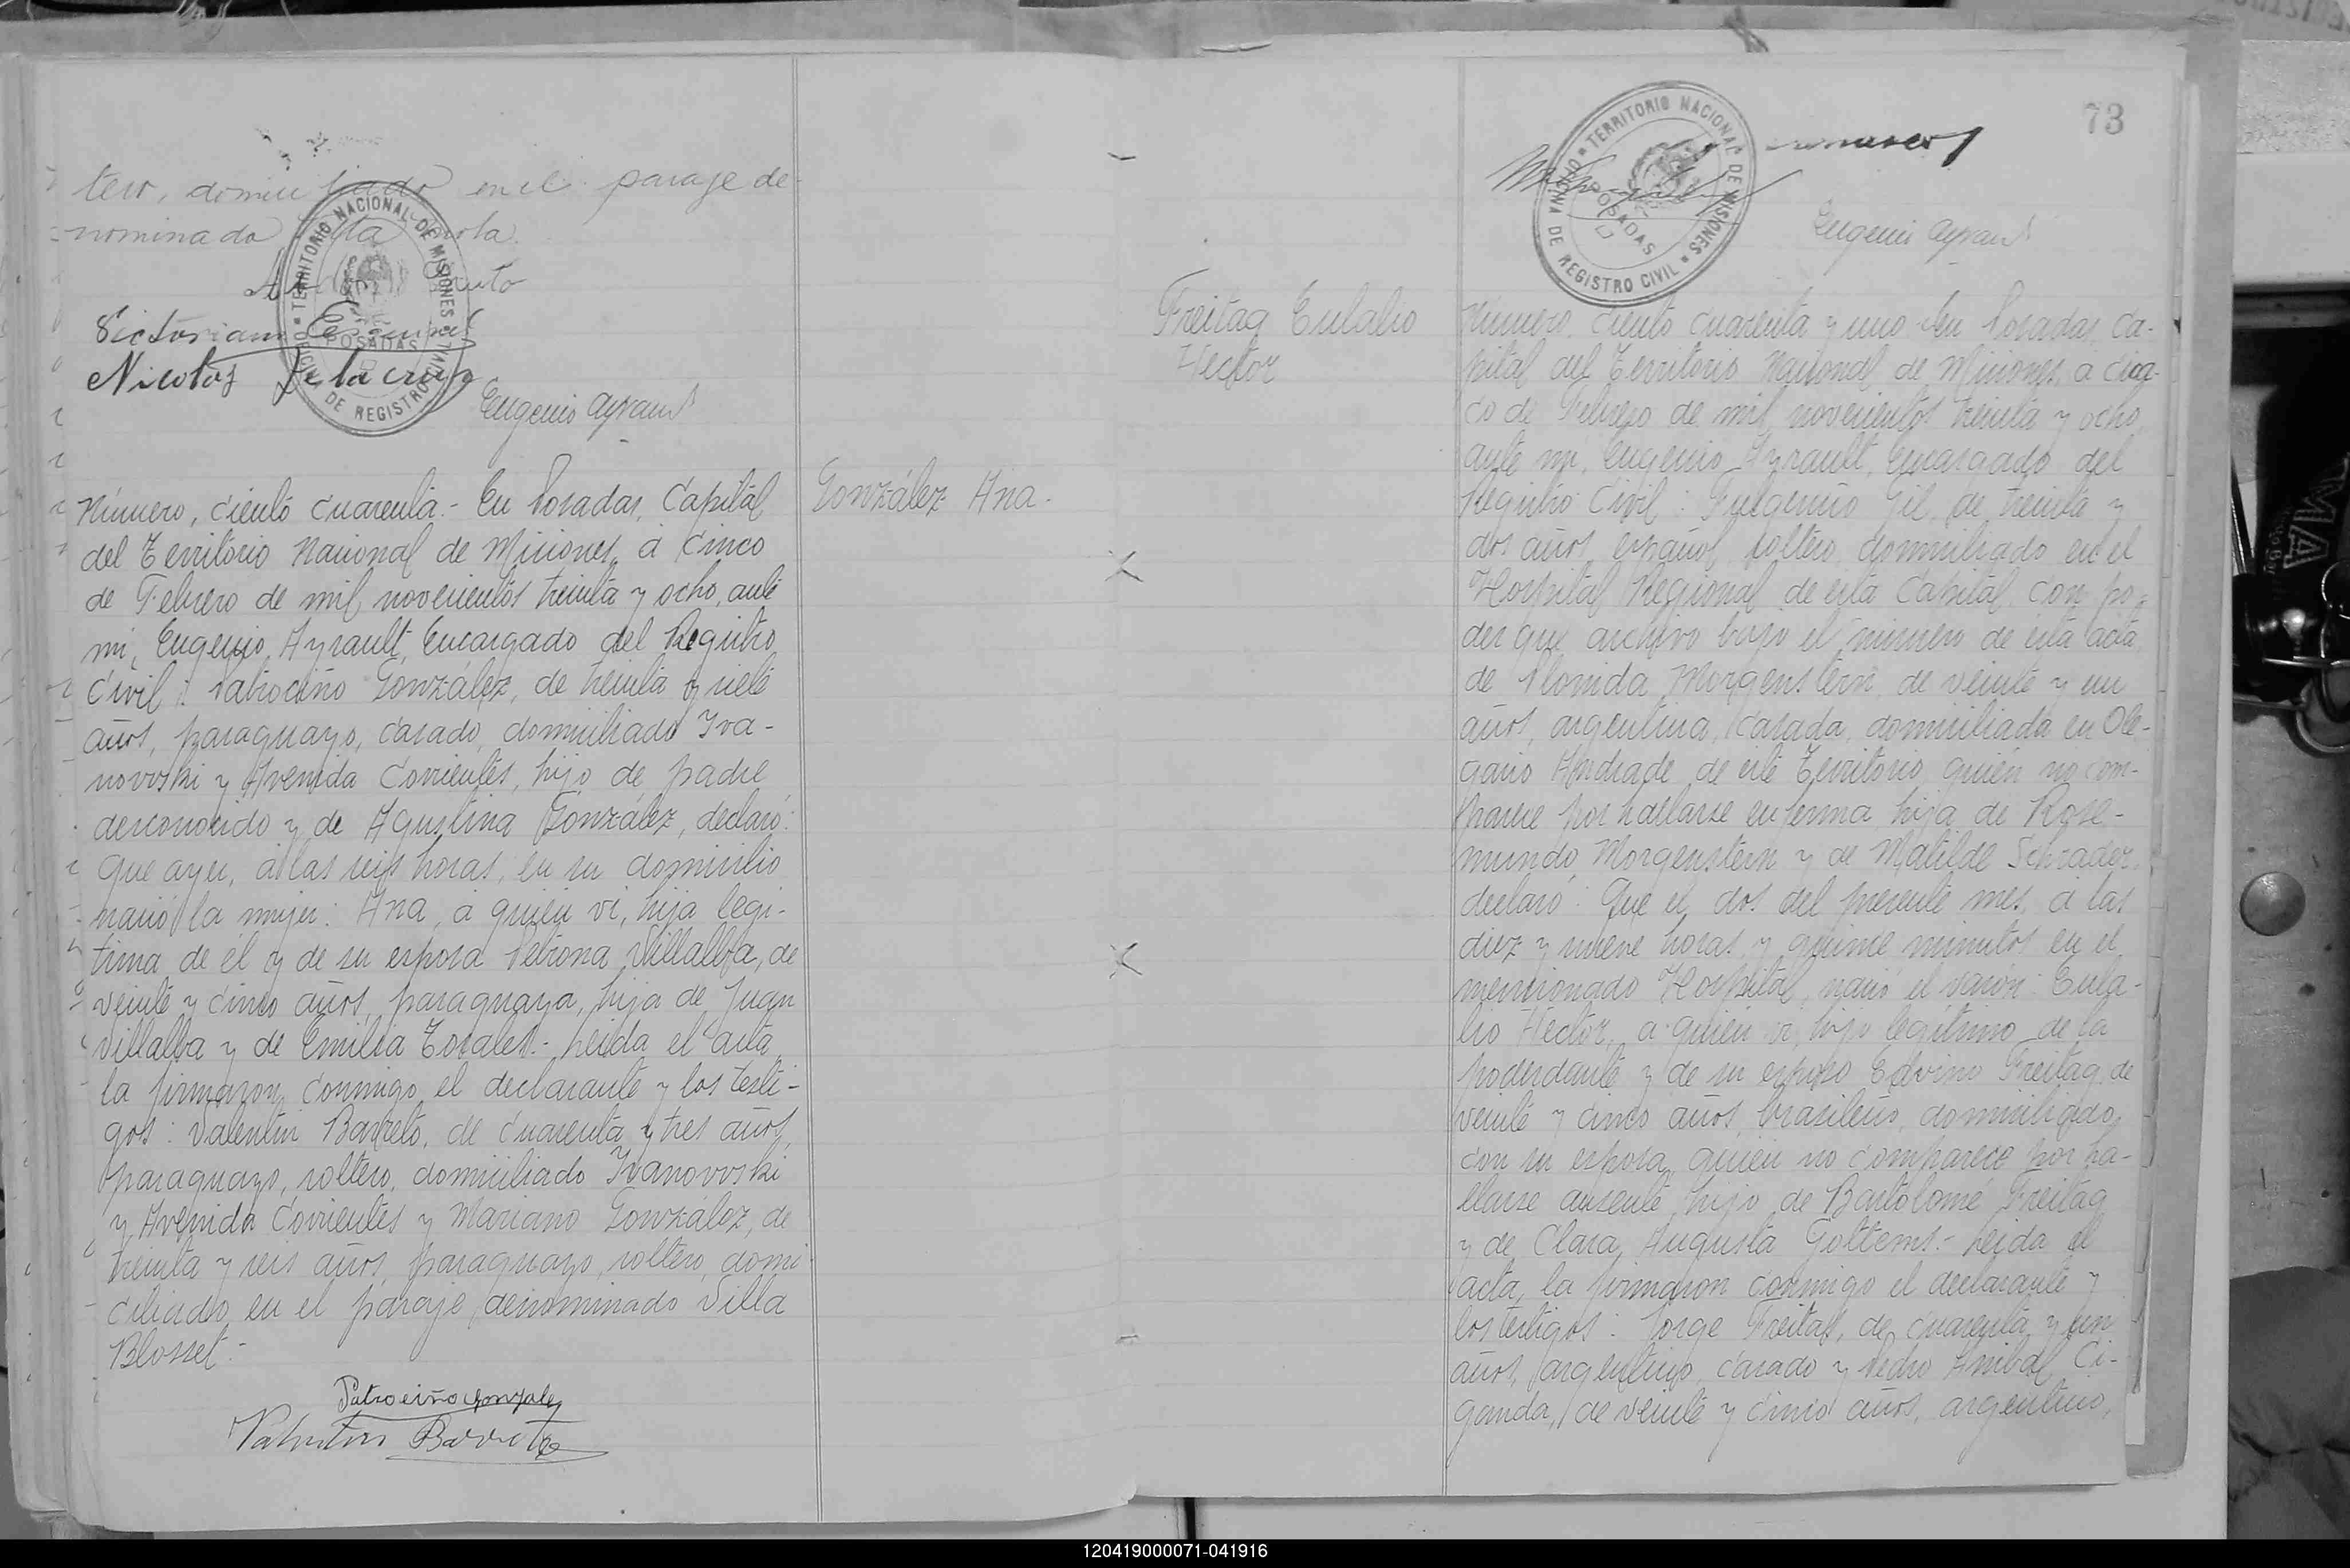 tero, domiciliado en el paraje de-
nominado
TERRITORIO NACIONAL DE MISIONES
OFICINA DE REGISTRO CIVIL
POSADAS
Nicolás De la cruz
Eugenio Ayrault
González Ana.
Número, ciento cuarenta.- En Posadas, Capital
del Territorio Nacional de Misiones, á cinco
de Febrero de mil novecientos treinta y ocho, ante
mi, Eugenio Ayrault, Encargado del Registro
Civil: Patrociño González, de treinta y siete
años, paraguayo, casado, domiciliado Iva-
novoski y Avenida Corrientes, hijo de padre
desconocido y de Agustina González, declaró:
Que ayer, á las seis horas, en su domicilio
nació la mujer: Ana, a quién vi, hija legi-
tima de él y de su esposa Petrona Villalba, de
veinte y cinco años, paraguaya, hija de Juan
Villalba y de Emilia Tosales.- Leida el acta
la firmaron conmigo el declarante y los testi-
gos: Valentín Barreto, de cuarenta y tres años,
paraguayo, soltero, domiciliado Ivanovoski
y Avenida Corrientes y Mariano González, de
treinta y seis años, paraguayo, soltero, domi-
ciliado en el paraje denominado Villa
Blosset.-
Patrociño Gonzalez
Valentin Barreto
73
TERRITORIO NACIONAL DE MISIONES
OFICINA DE REGISTRO CIVIL
POSADAS
Eugenio Ayrault
Freitag Eulalio
Hector
Número, ciento cuarenta y uno.- En Posadas, Ca-
pital del Territorio Nacional de Misiones, á cin-
co de Febrero de mil novecientos treinta y ocho,
ante mi, Eugenio Ayrault, Encargado del
Registro Civil: Fulgencio Gil, de treinta y
dos años, español, soltero, domiciliado en el
Hospital Regional de esta Capital, con po-
der que archivo bajo el número de esta acta,
de Elonida Morgenstern, de veinte y un
años, argentina, casada, domiciliada en Ole-
gario Andrade, de este Territorio, quién no com-
parece por hallarse enferma, hija de Rose-
mundo Morgenstern y de Matilde Schrader,
declaró: Que el dos del presente mes, á las
diez y nueve horas y quince minutos en el
mencionado Hospital, nació el varón: Eula-
lio Hector, a quién vi, hijo legítimo de la
poderdante y de su esposo Edvino Freitag, de
veinte y cinco años, brasileño, domiciliado
con su esposa, quién no comparece por ha-
llarse ausente, hijo de Bartolomé Freitag
y de Clara Augusta Goltems.- Leida el
acta, la firmaron conmigo el declarante y
los testigos: Jorge Freitas, de cuarenta y un
años, argentino, casado y Pedro Anibal Ci-
ganda, de veinte y cinco años, argentino,
120419000071-041916